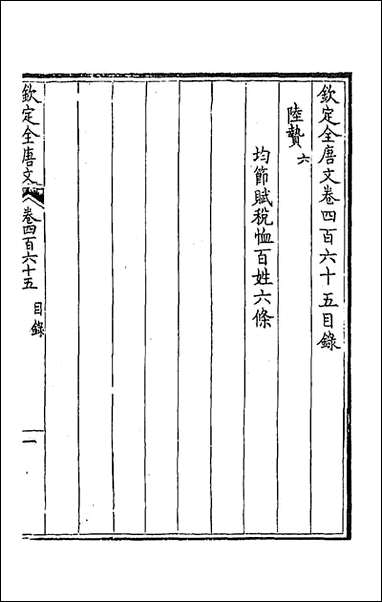 欽定全唐文卷四百六十五目錄
陸贄六
均節賦稅恤百姓六條
欽定全唐文 卷四百六十五 目錄 一